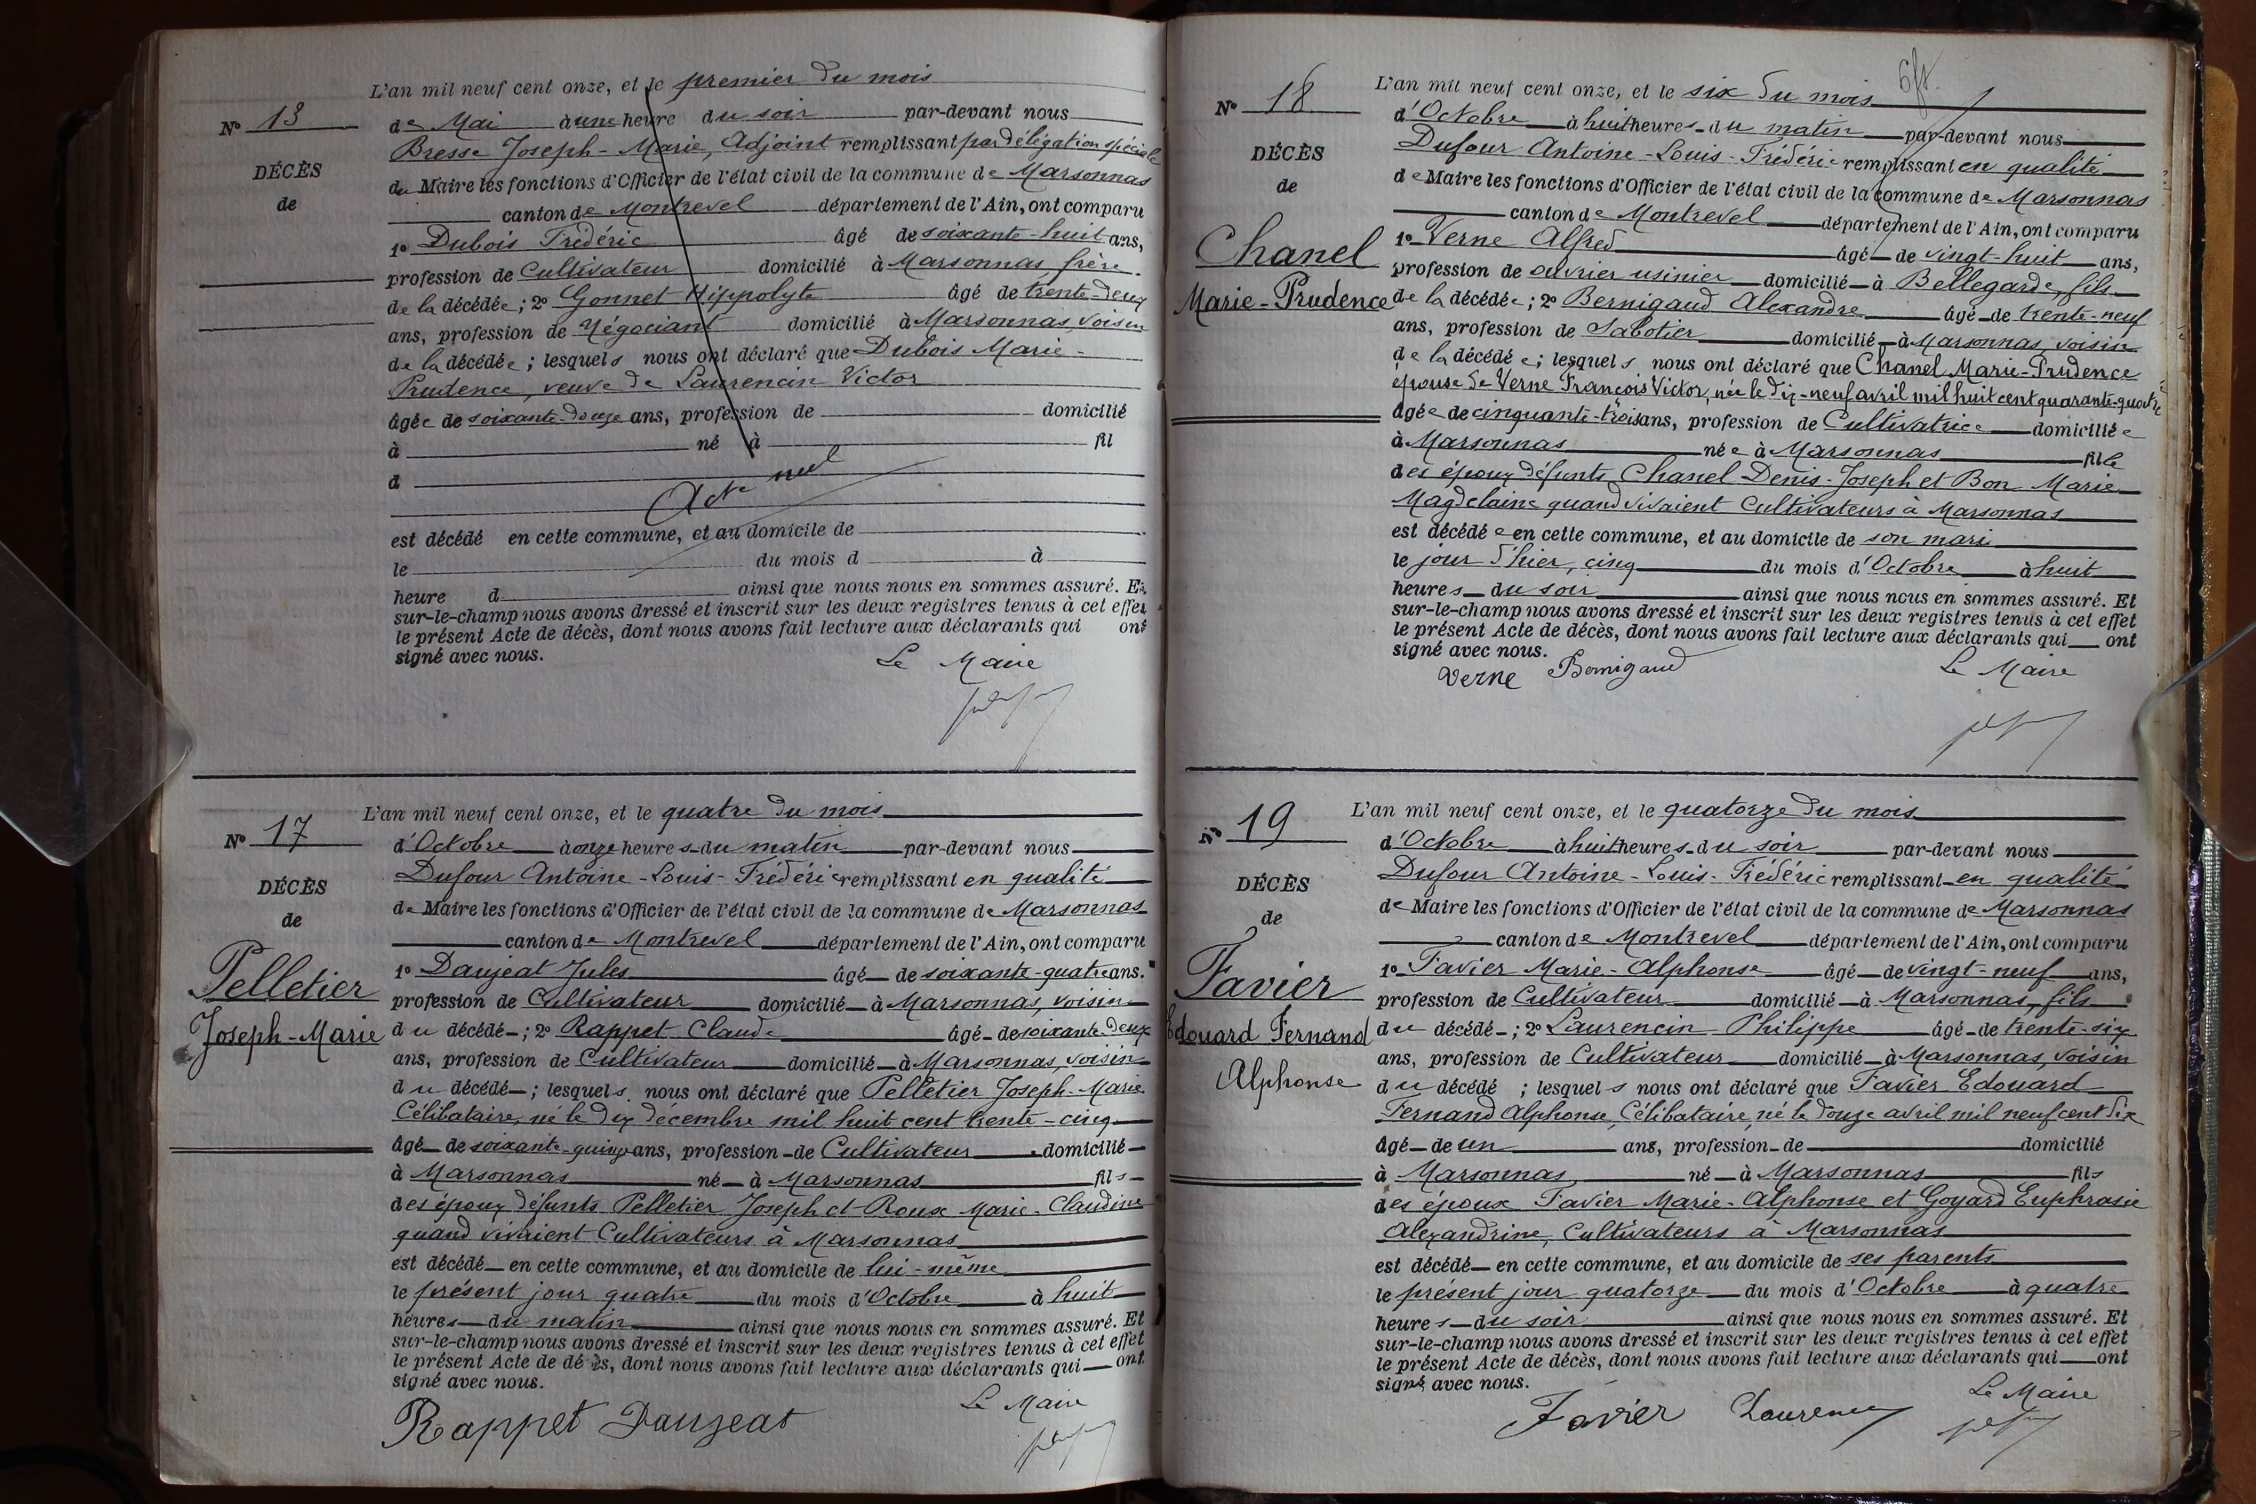 L'an mil neuf cent onze, et le premier du mois
N° 13
de Mai à une heure du soir par-devant nous
DÉCÈS
de
Bresse Joseph-Marie, Adjoint remplissant par délégation spéciale
du Maire les fonctions d'Officier de l'état civil de la commune de Marsonnas
canton de Montrevel département de l'Ain, ont comparu
1° Dubois Frédéric âgé de soixante-huit ans,
profession de Cultivateur domicilié à Marsonnas, frère
de la décédée; 2° Gonnet Hippolyte âgé de trente-deux
ans, profession de Négociant domicilié à Marsonnas, voisin
de la décédée; lesquels nous ont déclaré que Dubois Marie-
Prudence, veuve de Laurencin Victor
âgée de soixante-douze ans, profession de domicilié
à né à fil
d
Acte nul
est décédé en cette commune, et au domicile de
le du mois d à
heure d ainsi que nous nous en sommes assuré. Et
sur-le-champ nous avons dressé et inscrit sur les deux registres tenus à cet effet
le présent Acte de décès, dont nous avons fait lecture aux déclarants qui ont
signé avec nous.
Le Maire
L'an mil neuf cent onze, et le quatre du mois
N° 17
d'Octobre à onze heures du matin par-devant nous
DÉCÈS
de
Pelletier
Joseph-Marie
Dufour Antoine-Louis-Frédéric remplissant en qualité
de Maire les fonctions d'Officier de l'état civil de la commune de Marsonnas
canton de Montrevel département de l'Ain, ont comparu
1° Daujeat Jules âgé de soixante-quatre ans.
profession de Cultivateur domicilié à Marsonnas, voisin
du décédé; 2° Rappet Claude âgé de soixante-deux
ans, profession de Cultivateur domicilié à Marsonnas, voisin
du décédé; lesquels nous ont déclaré que Pelletier Joseph-Marie
Célibataire, né le dix decembre mil huit cent trente-cinq
âgé de soixante-quinze ans, profession de Cultivateur domicilié
à Marsonnas né à Marsonnas fils
des époux défunts Pelletier Joseph et Roux Marie-Claudine
quand vivaient Cultivateurs à Marsonnas
est décédé en cette commune, et au domicile de lui-même
le présent jour quatre du mois d'Octobre à huit
heures du matin ainsi que nous nous en sommes assuré. Et
sur-le-champ nous avons dressé et inscrit sur les deux registres tenus à cet effet
le présent Acte de décès, dont nous avons fait lecture aux déclarants qui ont
signé avec nous.
Le Maire
Rappet Daujeat
L'an mil neuf cent onze, et le six du mois
N° 18
d'Octobre à huit heures du matin par-devant nous
DÉCÈS
de
Chanel
Marie-Prudence
Dufour Antoine-Louis-Frédéric remplissant en qualité
de Maire les fonctions d'Officier de l'état civil de la commune de Marsonnas
canton de Montrevel département de l'Ain, ont comparu
1° Verne Alfred âgé de vingt-huit ans,
profession de ouvrier usinier domicilié à Bellegarde, fils
de la décédée; 2° Bernigaud Alexandre âgé de trente-neuf
ans, profession de Sabotier domicilié à Marsonnas, voisin
de la décédée; lesquels nous ont déclaré que Chanel Marie-Prudence
épouse de Verne François Victor, née le dix-neuf avril mil huit cent quarante-quatre
âgée de cinquante-trois ans, profession de Cultivatrice domiciliée
à Marsonnas née à Marsonnas fille
des époux défunts Chanel Denis-Joseph et Bon Marie
Magdelaine quand vivaient Cultivateurs à Marsonnas
est décédée en cette commune, et au domicile de son mari
le jour d'hier, cinq du mois d'Octobre à huit
heures du soir ainsi que nous nous en sommes assuré. Et
sur-le-champ nous avons dressé et inscrit sur les deux registres tenus à cet effet
le présent Acte de décès, dont nous avons fait lecture aux déclarants qui ont
signé avec nous.
Verne Bernigaud Le Maire
L'an mil neuf cent onze, et le quatorze du mois
N° 19
d'Octobre à huit heures du soir par-devant nous
DÉCÈS
de
Favier
Edouard Fernand
Alphonse
Dufour Antoine-Louis-Frédéric remplissant en qualité
de Maire les fonctions d'Officier de l'état civil de la commune de Marsonnas
canton de Montrevel département de l'Ain, ont comparu
1° Favier Marie-Alphonse âgé de vingt-neuf ans,
profession de Cultivateur domicilié à Marsonnas, fils
du décédé; 2° Laurencin Philippe âgé de trente-six
ans, profession de Cultivateur domicilié à Marsonnas, voisin
du décédé; lesquels nous ont déclaré que Favier Edouard
Fernand Alphonse, Célibataire, né le douze avril mil neuf cent dix
âgé de un ans, profession de domicilié
à Marsonnas né à Marsonnas fils
des époux Favier Marie-Alphonse et Goyard Euphrasie
Alexandrine, Cultivateurs à Marsonnas
est décédé en cette commune, et au domicile de ses parents
le présent jour quatorze du mois d'Octobre à quatre
heures du soir ainsi que nous nous en sommes assuré. Et
sur-le-champ nous avons dressé et inscrit sur les deux registres tenus à cet effet
le présent Acte de décès, dont nous avons fait lecture aux déclarants qui ont
signé avec nous.
Le Maire
Favier Laurencin